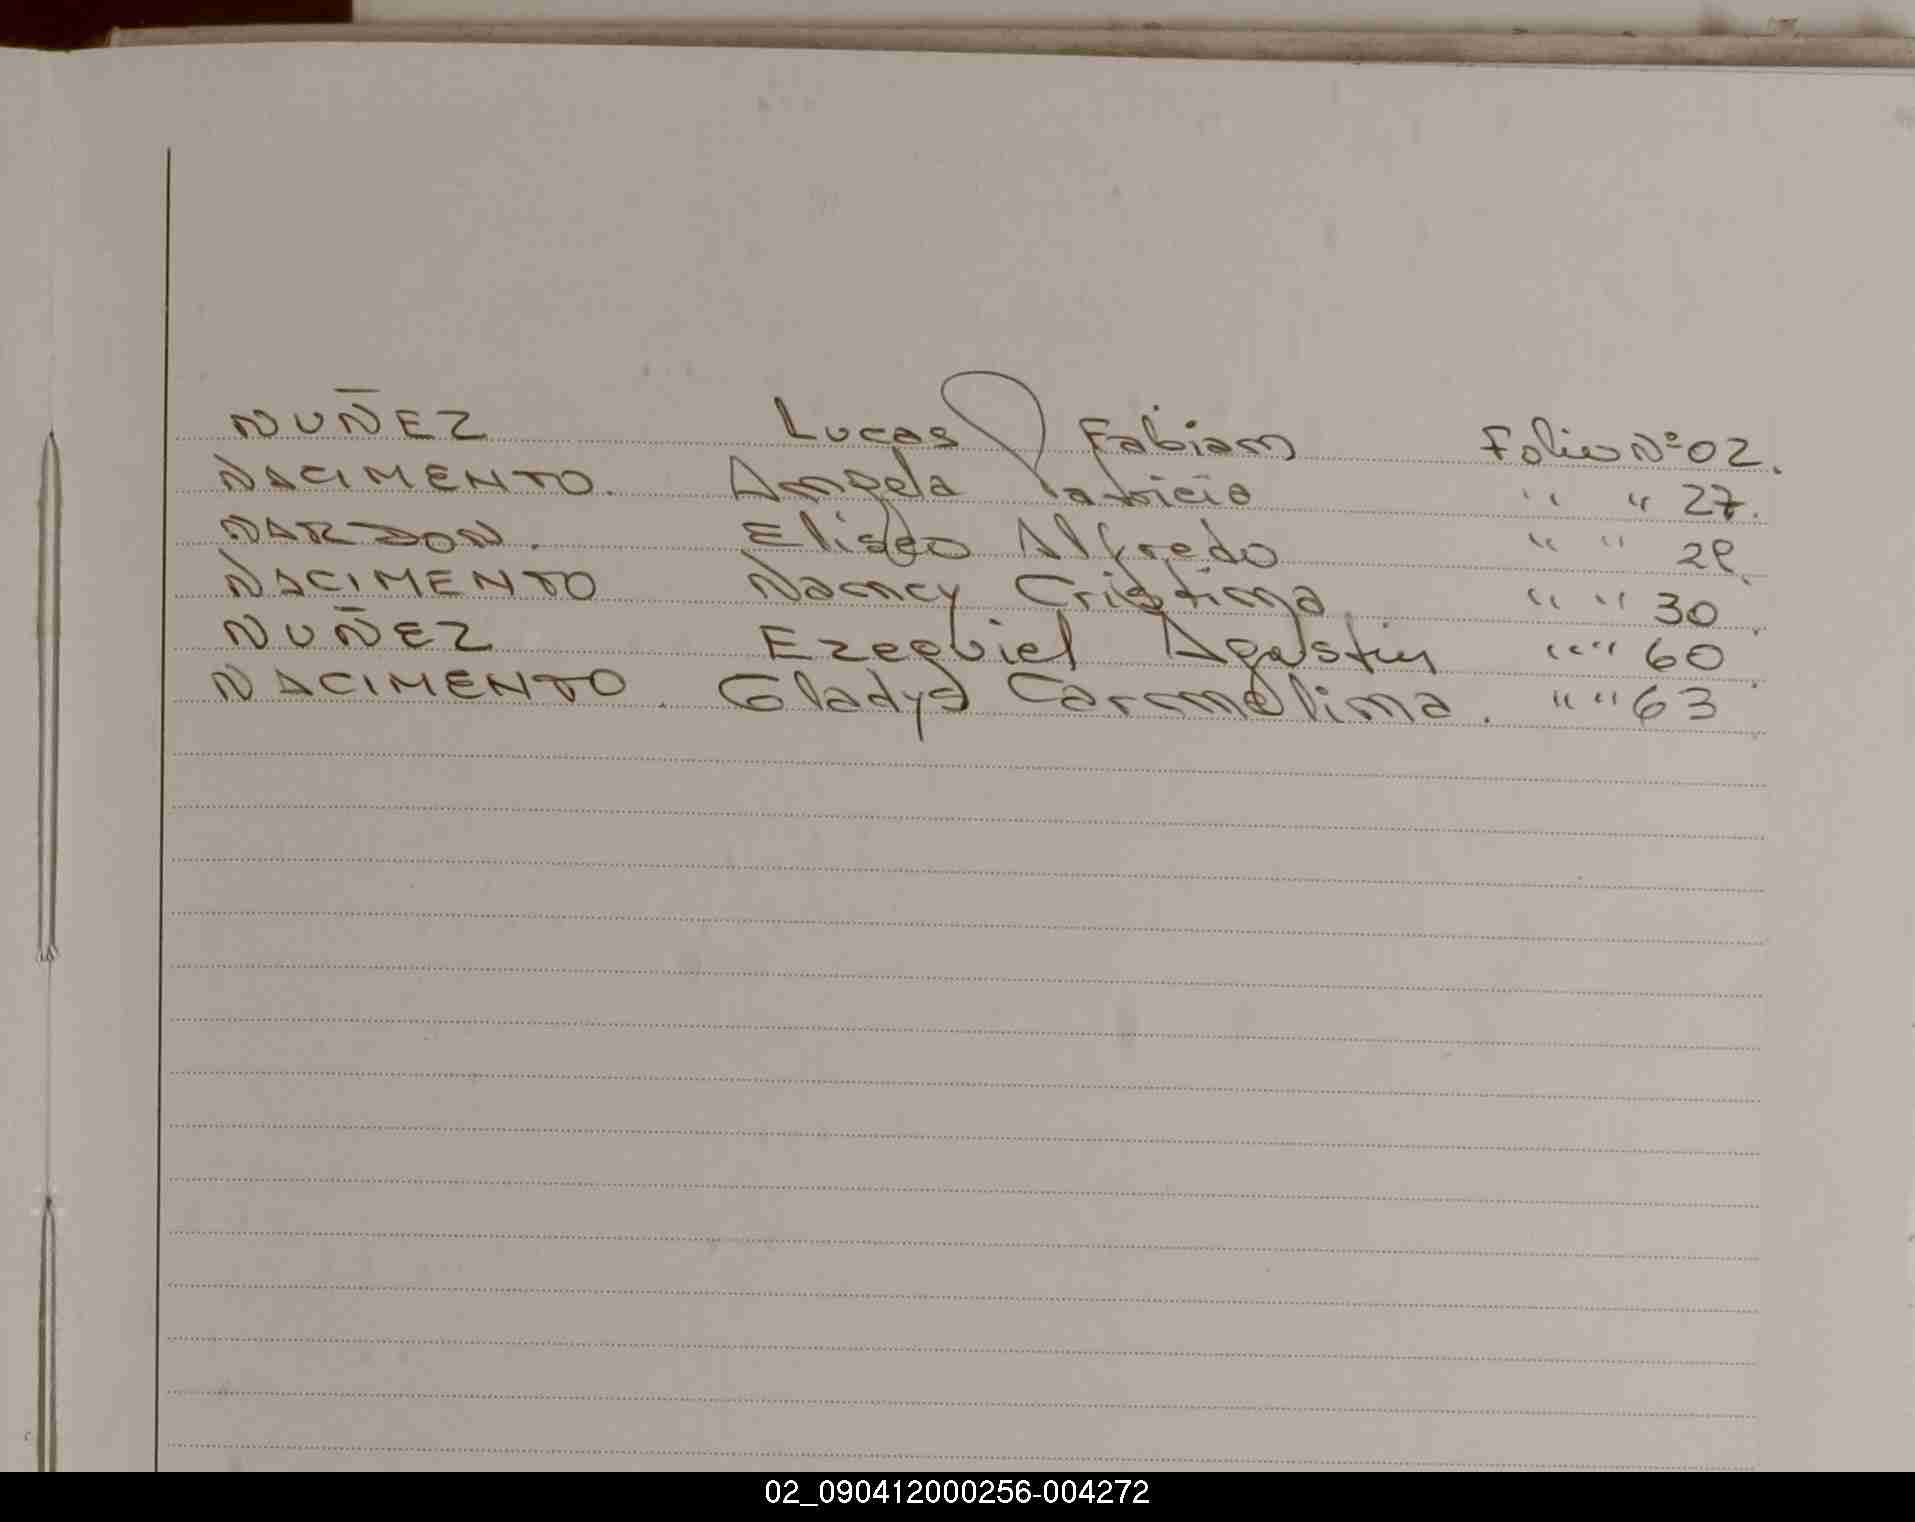 NUÑEZ Lucas Fabian Folio Nº 02.
NACIMENTO. Angela Patricia " " 27.
NARDON. Eliseo Alfredo " "
NACIMENTO Nancy Cristina " " 30
NUÑEZ Ezequiel Agustin " " 60
NACIMENTO. Gladys Carmelina. " " 63
02_090412000256-004272